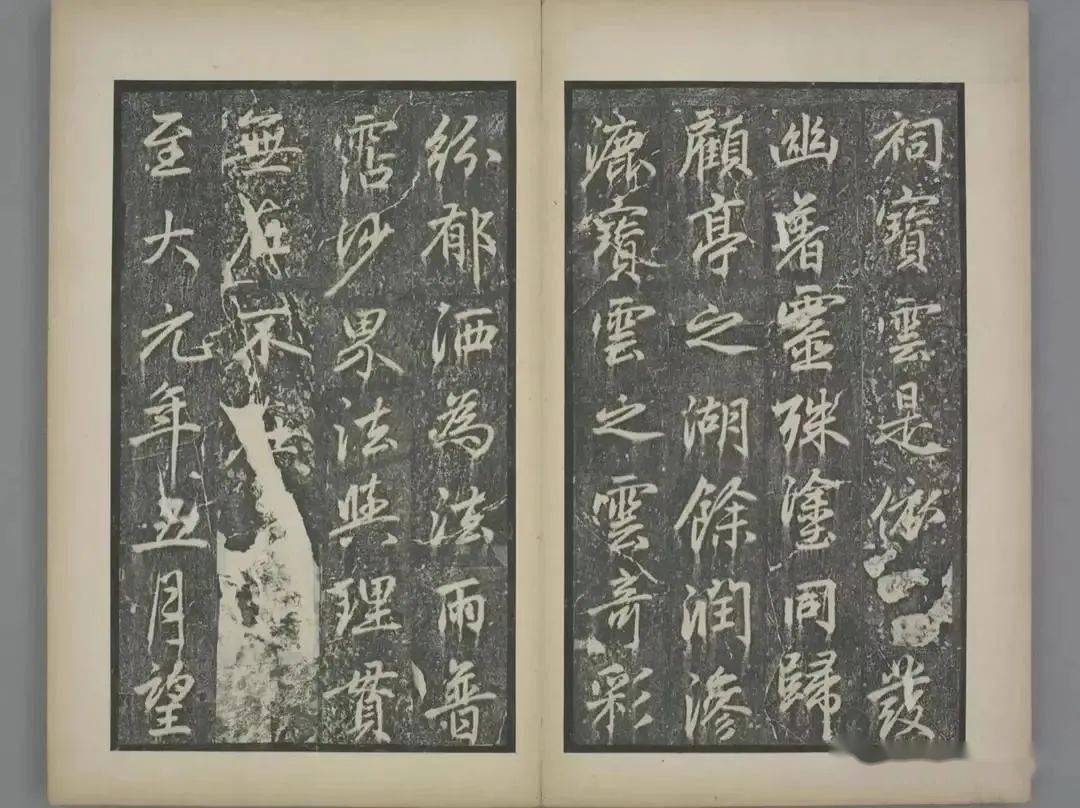 祠寶雲是發
幽著靈殊塗同歸
顧亭之湖餘潤滲
漉寶雲之雲奇彩
紛郁洒為法雨普
霑沙界法與理貫
無在不
至大元年五月望